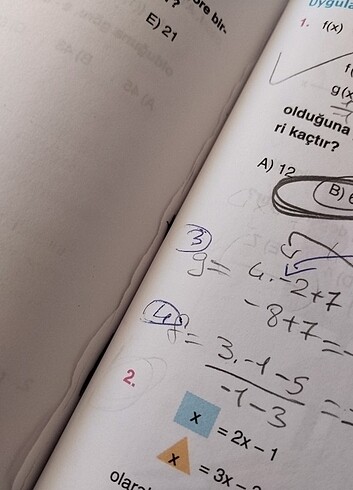 E) 21
1. f(x)
g(x
olduğuna
ri kaçtır?
A) 12
B) 6
3
g = 4.-2+7
-8+7=-
4
= 3.-1-5
-1-3
2.
x = 2x - 1
x = 3x -